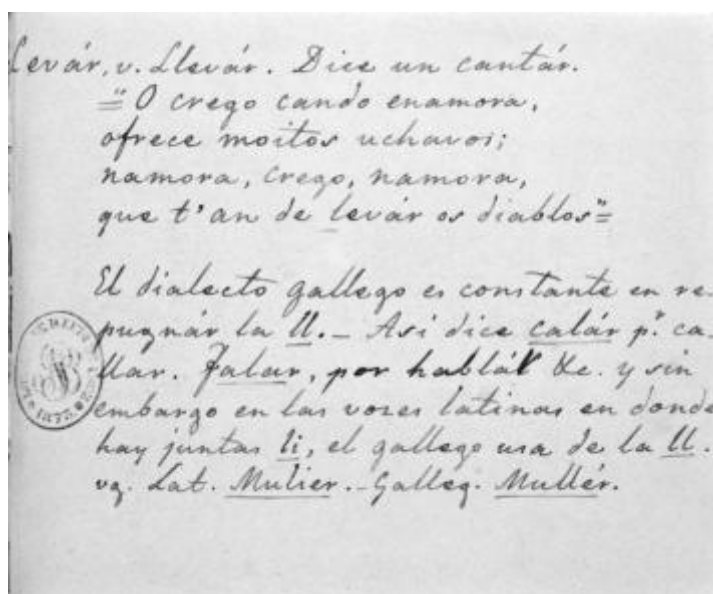 Levár, v. Llevár. Dice un cantár.
"= O crego cando enamora,
ofrece moitos uchavos;
namora, crego, namora,
que t'an de levár os diablos"=
El dialecto gallego es constante en re-
pugnár la ll. – Asi dice calár pr. ca-
llar. Falar, por hablár &c. y sin
embargo en las voces latinas en donde
hay juntas li, el gallego usa de la ll.
vg. Lat. Mulier. – Galleg. Mullér.
1873